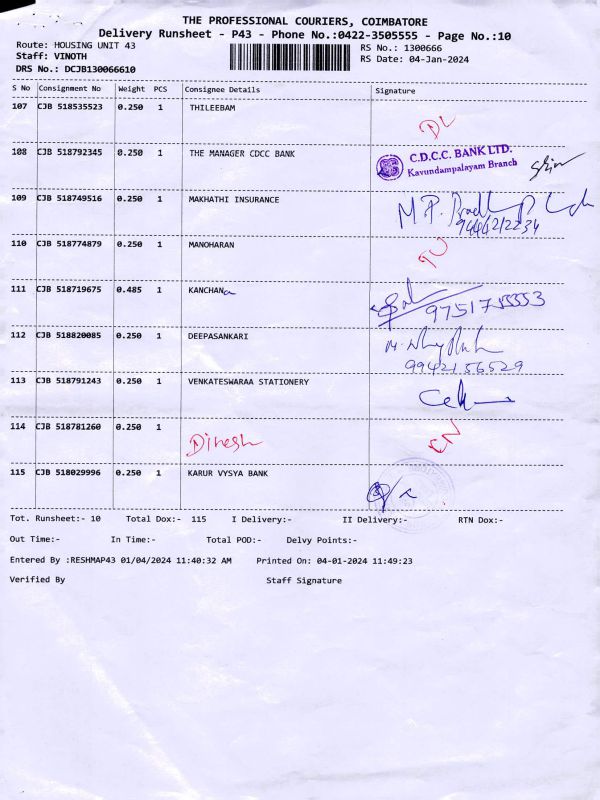 THE PROFESSIONAL COURIERS, COIMBATORE
Delivery Runsheet - P43 - Phone No.:0422-3505555 - Page No.:10
Route: HOUSING UNIT 43 RS No.: 1300666
Staff: VINOTH RS Date: 04-Jan-2024
DRS No.: DCJB130066610
S No Consignment No Weight PCS Consignee Details Signature
107 CJB 518535523 0.250 1 THILEEBAM DL
108 CJB 518792345 0.250 1 THE MANAGER CDCC BANK C.D.C.C. BANK LTD.
Kavundampalayam Branch
109 CJB 518749516 0.250 1 MAKHATHI INSURANCE
9444212234
110 CJB 518774879 0.250 1 MANOHARAN
111 CJB 518719675 0.485 1 KANCHANa
9751755553
112 CJB 518820085 0.250 1 DEEPASANKARI
9942156529
113 CJB 518791243 0.250 1 VENKATESWARAA STATIONERY
114 CJB 518781260 0.250 1
Dinesh
115 CJB 518029996 0.250 1 KARUR VYSYA BANK
Tot. Runsheet:- 10 Total Dox:- 115 I Delivery:- II Delivery:- RTN Dox:-
Out Time:- In Time:- Total POD:- Delvy Points:-
Entered By :RESHMAP43 01/04/2024 11:40:32 AM Printed On: 04-01-2024 11:49:23
Verified By Staff Signature